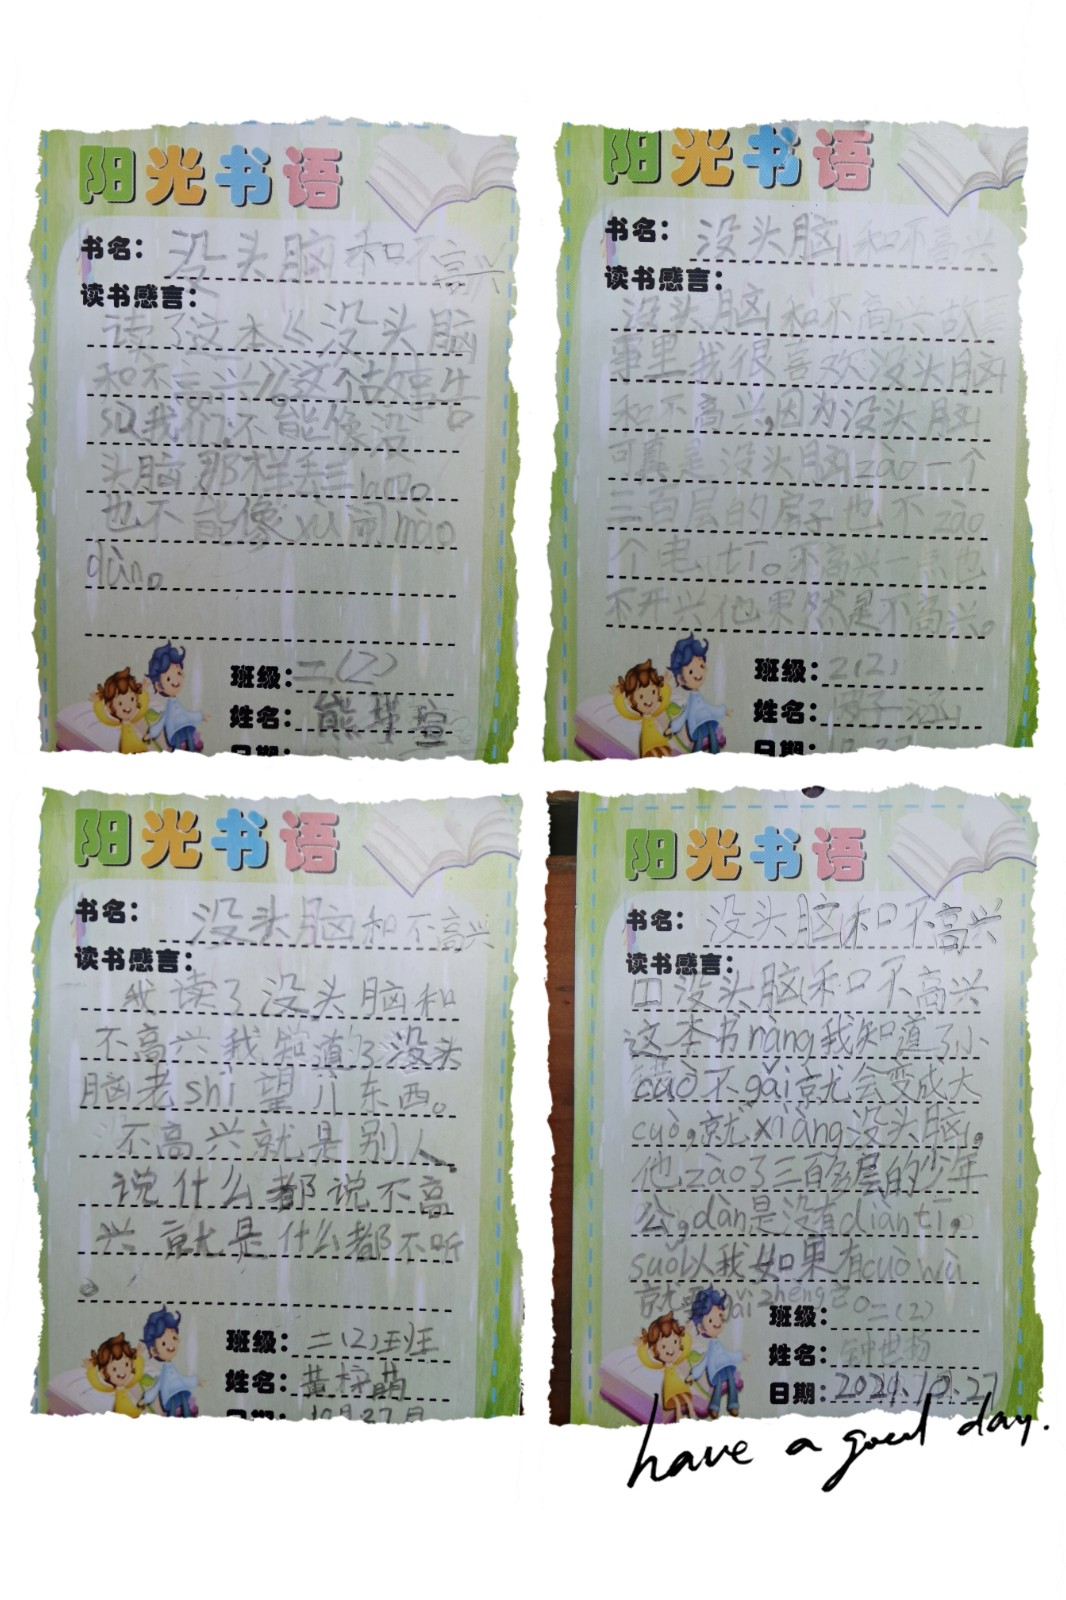 阳光书语
书名：没头脑和不高兴
读书感言：
读了这本《没头脑
和不高兴》这个故事告
我们不能像没
头脑那样丢三lào。
也不能像
dàn。
班级：二(2)
姓名：熊 瑄
阳光书语
书名：没头脑和不高兴
读书感言：
没头脑和不高兴故
事里我很喜欢没头脑
和不高兴,因为没头脑
可真是没头脑zào一个
三百层的房子也不zào
个电tī。不高兴一点也
不开兴他果然是不高兴。
班级：2(2)
姓名：
日期：
阳光书语
书名：没头脑和不高兴
读书感言：
我读了没头脑和
不高兴我知道了没头
脑老shì望川东西。
不高兴就是别人
说什么都说不高
兴就是什么都不听
。
班级：二(2)班
姓名：黄梓萌
10月27日
阳光书语
书名：没头脑和不高兴
读书感言：
没头脑和不高兴
这本书ràng我知道了小
cuò不gǎi就会变成大
cuò,就xiàng没头脑。
他zào了三百多层的少年
公,dàn是没有diàntī。
suǒ以我如果有cuò wù
就要
班级：二(2)
姓名：
日期：2021.10.27
have a good day.